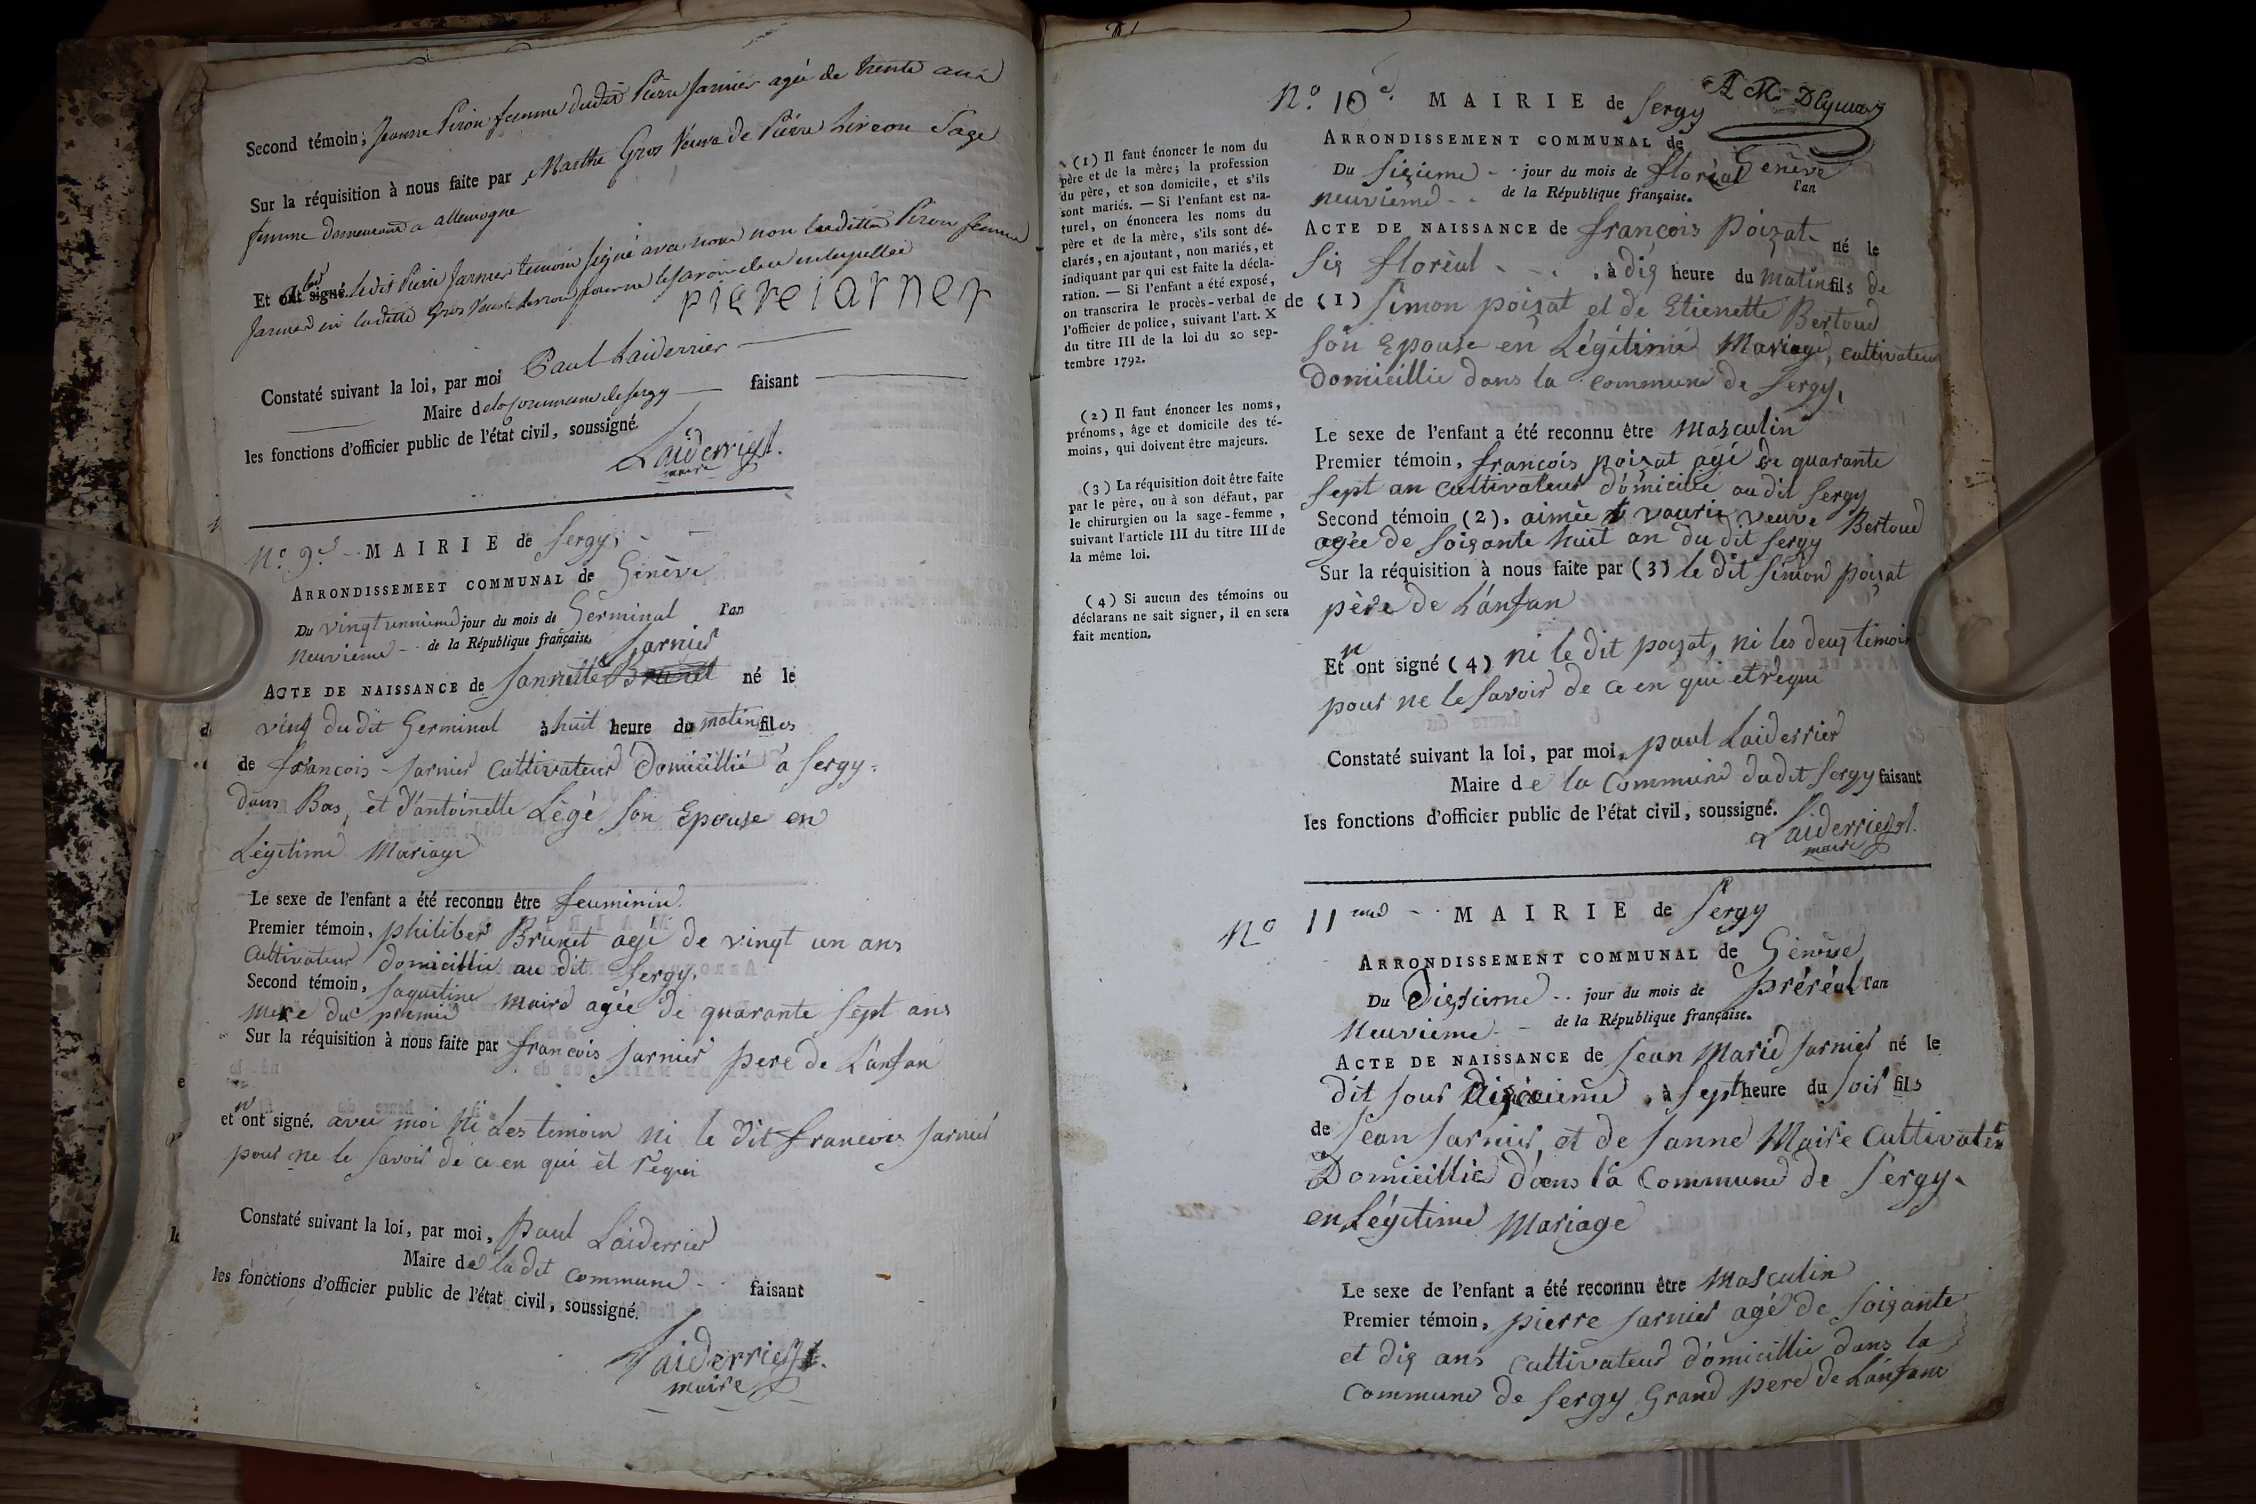 Second témoin, Jeanne Piron femme dudit Pierre Jarnier agée de trente ans
Sur la réquisition à nous faite par Marthe Gros Veuve de Pierre hireon Sage
femme demeurant a allemogne
Et ont signé. ledit Pierre Jarnier temoin signé avec nous non laditte Piron femme
Jarnier ni laditte Gros Veuve pour ne le savoir de ce enterpellée
pierejarner
Constaté suivant la loi, par moi Paul Laiderrier
Maire de la Commune de Sergy faisant
les fonctions d'officier public de l'état civil, soussigné.
Laiderrier
maire
N.o 9.e MAIRIE de Sergy.
ARRONDISSEMEET COMMUNAL de Genève
Du vingt unnieme jour du mois de Germinal l'an
Neuvieme de la République française.
Jarnier
ACTE DE NAISSANCE de Jannette Brunet né le
ving du dit Germinal à huit heure du matin filles
de françois Jarnier Cultivateur Domicillié à Sergy
dans Bas, et d'antoinette Légé Son Epouse en
Légitime Mariage
Le sexe de l'enfant a été reconnu être feuminin
Premier témoin, philiber Brunet agé de vingt un ans
Cultivateur domicillié au dit Sergy.
Second témoin, Jaquetine Maire agée de quarante sept ans
mere du premié
Sur la réquisition à nous faite par françois Jarnier pere de L'anfan
et n'ont signé. avec moi Ni Les temoin ni le dit francois Jarnier
pour ne le savoir de ce en qui et réqui
Constaté suivant la loi, par moi, Paul Laiderrier
Maire de la dit Commune faisant
les fonctions d'officier public de l'état civil, soussigné.
Laiderrier
maire
N.o 10e. MAIRIE de Sergy
ARRONDISSEMENT COMMUNAL de Genève
Du Sizieme jour du mois de floréal l'an
neuvieme de la République française.
ACTE DE NAISSANCE de françois Poizat né le
Six florèal à dix heure du matin fils de
de (1) Simon poizat et de Etienette Bertoud
Son Epouse en Légitime Mariage, cultivateur
Domicillié dans la commune de Sergy,
Le sexe de l'enfant a été reconnu être Masculin
Premier témoin, françois poizat agé de quarante
sept an Cultivateur d'omicillié au dit Sergy
Second témoin (2). aimée vaurié veuve Bertoud
agée de soixante huit an du dit Sergy
Sur la réquisition à nous faite par (3) le dit Simon poizat
père de L'anfan
Et n'ont signé (4) ni le dit poizat, ni les deux temoin
pour ne le savoir de ce en qui et réqui
Constaté suivant la loi, par moi, paul Laiderrier
Maire de la Commune dudit Sergy faisant
les fonctions d'officier public de l'état civil, soussigné.
Laiderrier
maire
(1) Il faut énoncer le nom du
père et de la mère; la profession
du père, et son domicile, et s'ils
sont mariés. — Si l'enfant est na-
turel, on énoncera les noms du
père et de la mère, s'ils sont dé-
clarés, en ajoutant, non mariés, et
indiquant par qui est faite la décla-
ration. — Si l'enfant a été exposé,
on transcrira le procès-verbal de
l'officier de police, suivant l'art. X
du titre III de la loi du 20 sep-
tembre 1792.
(2) Il faut énoncer les noms,
prénoms, âge et domicile des té-
moins, qui doivent être majeurs.
(3) La réquisition doit être faite
par le père, ou à son défaut, par
le chirurgien ou la sage-femme,
suivant l'article III du titre III de
la même loi.
(4) Si aucun des témoins ou
déclarans ne sait signer, il en sera
fait mention.
No 11 MAIRIE de Sergy
ARRONDISSEMENT COMMUNAL de Genève
Du Dixsieme jour du mois de préréal l'an
Neuvieme de la République française.
ACTE DE NAISSANCE de Jean Marie Jarnier né le
dit Jour Dixieme, à Sept heure du soir fils
de Jean Jarnier, et de Janne Maire Cultivateur
Domicillié d'ans la Commune de Sergy.
en Légitime Mariage
Le sexe de l'enfant a été reconnu être Masculin
Premier témoin, pierre Jarnier agé de soixante
et dix ans Cultivateur d'omicillié dans la
Commune de Sergy Grand pere de L'anfant